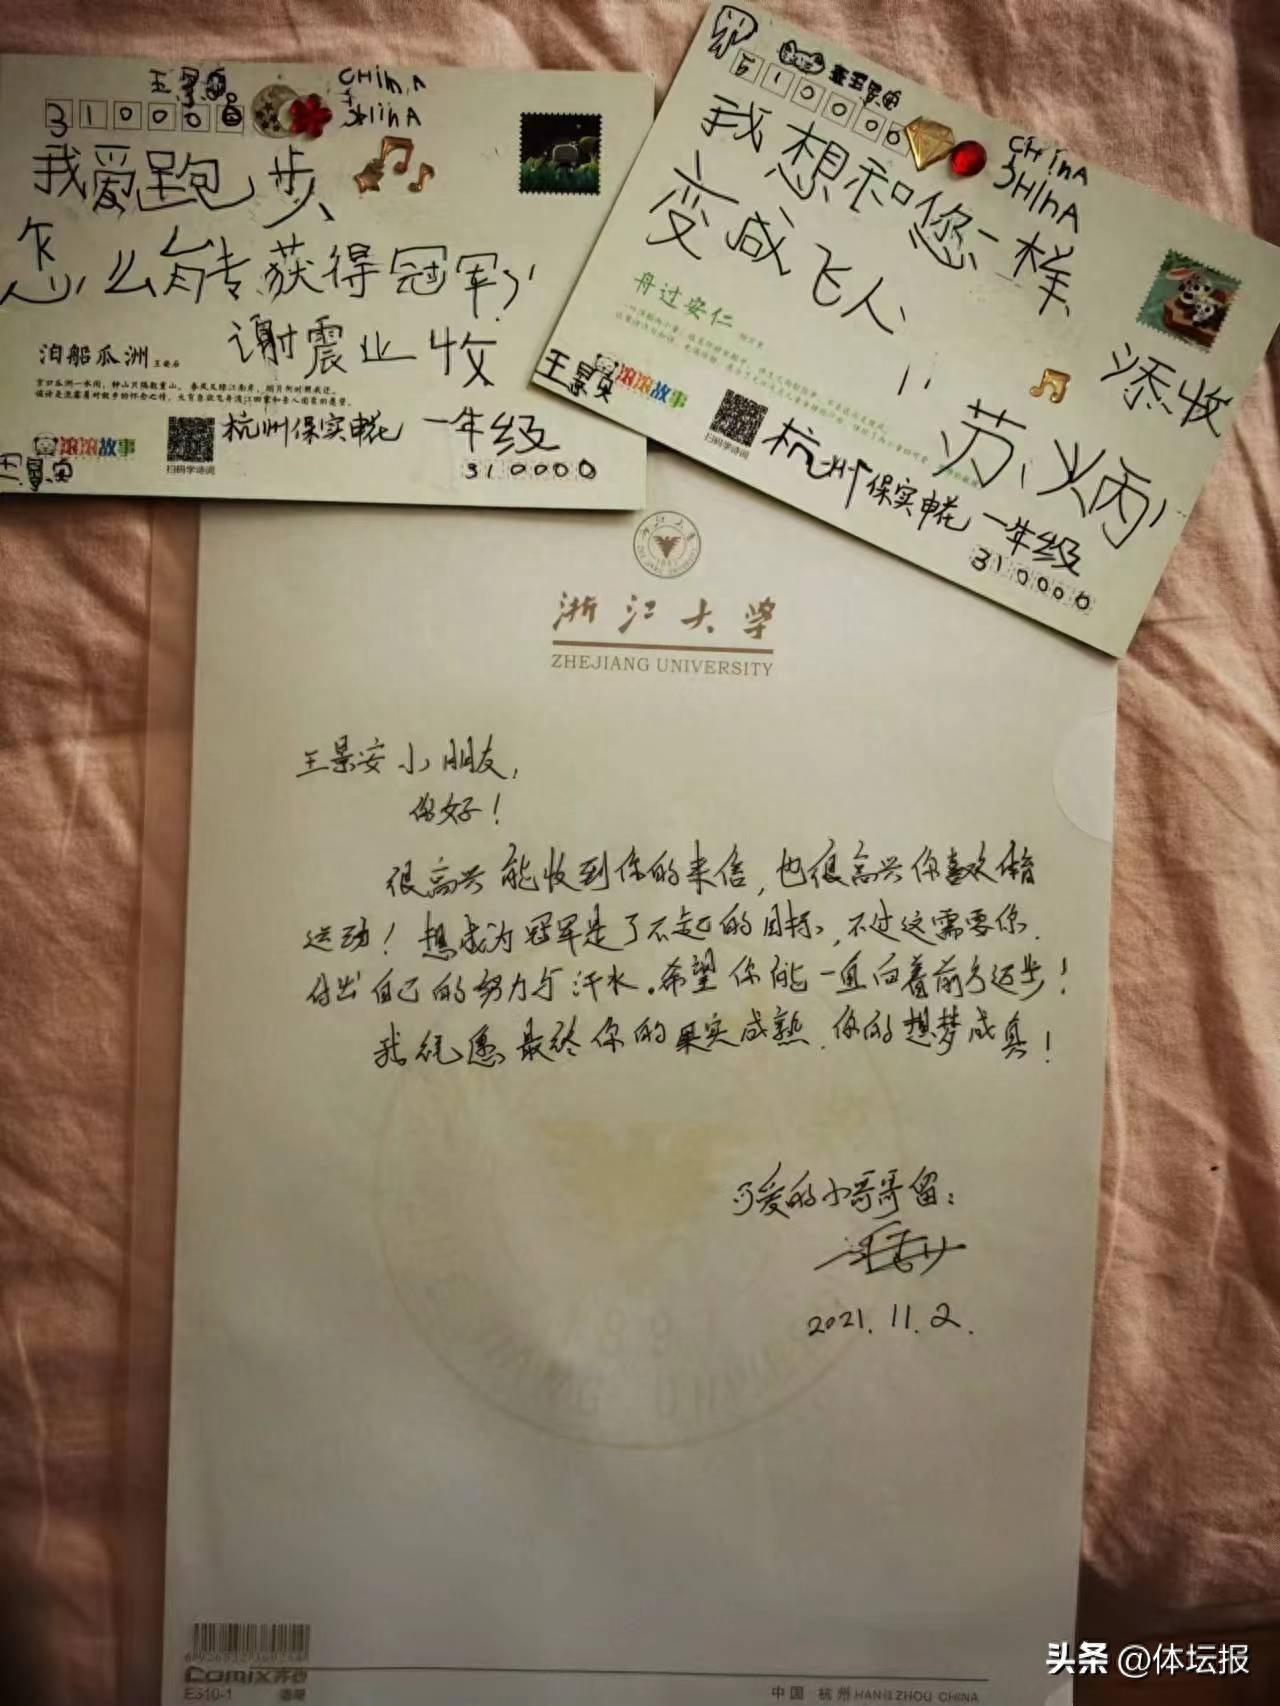 王景安
CHinA
310000
我爱跑步
怎么能获得冠军？
谢震业 收
泊船瓜洲 王安石
京口瓜洲一水间，钟山只隔数重山。春风又绿江南岸，明月何时照我还。
滚滚故事
扫码学诗词
杭州保实申花 一年级
310000
王景安
王景安
310000
CHinA
3HinA
我想和您一样
变成飞人！
舟过安仁
添收
苏炳
王景安
滚滚故事
扫码学诗词
杭州保实申花 一年级
310000
浙江大学
ZHEJIANG UNIVERSITY
王景安小朋友，
你好！
很高兴能收到你的来信，也很高兴你喜欢体育
运动！想成为冠军是了不起的目标，不过这需要你
付出自己的努力与汗水。希望你能一直向着前方迈步！
我祝愿最终你的果实成熟，你的想梦成真！
可爱的小哥哥留：
2021.11.2.
Comix 齐心
E310-1
中国 杭州 HANGZHOU CHINA
头条 @体坛报